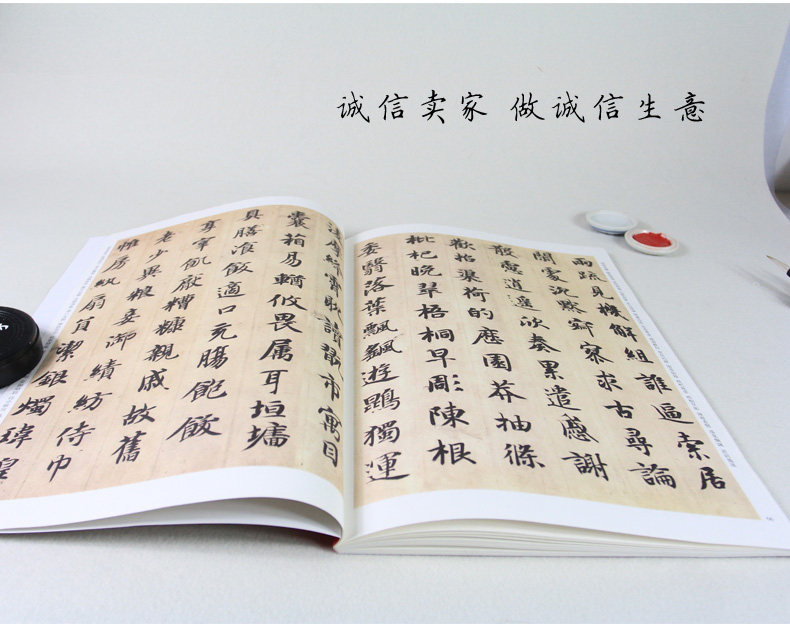 诚信卖家 做诚信生意
兩疏見機解組誰逼索居
閑處沉默寂寥求古尋論
散慮逍遙欣奏累遣慼謝
歡招渠荷的歷園莽抽條
枇杷晚翠梧桐早彫陳根
委翳落葉飄颻遊鵾獨運
凌摩絳霄耽讀翫市寓目
囊箱易輶攸畏属耳垣墻
具膳飡飯適口充腸飽飫
享宰飢厭糟糠親戚故舊
老少異粮妾御績紡侍巾
帷房紈扇員潔銀燭煒煌